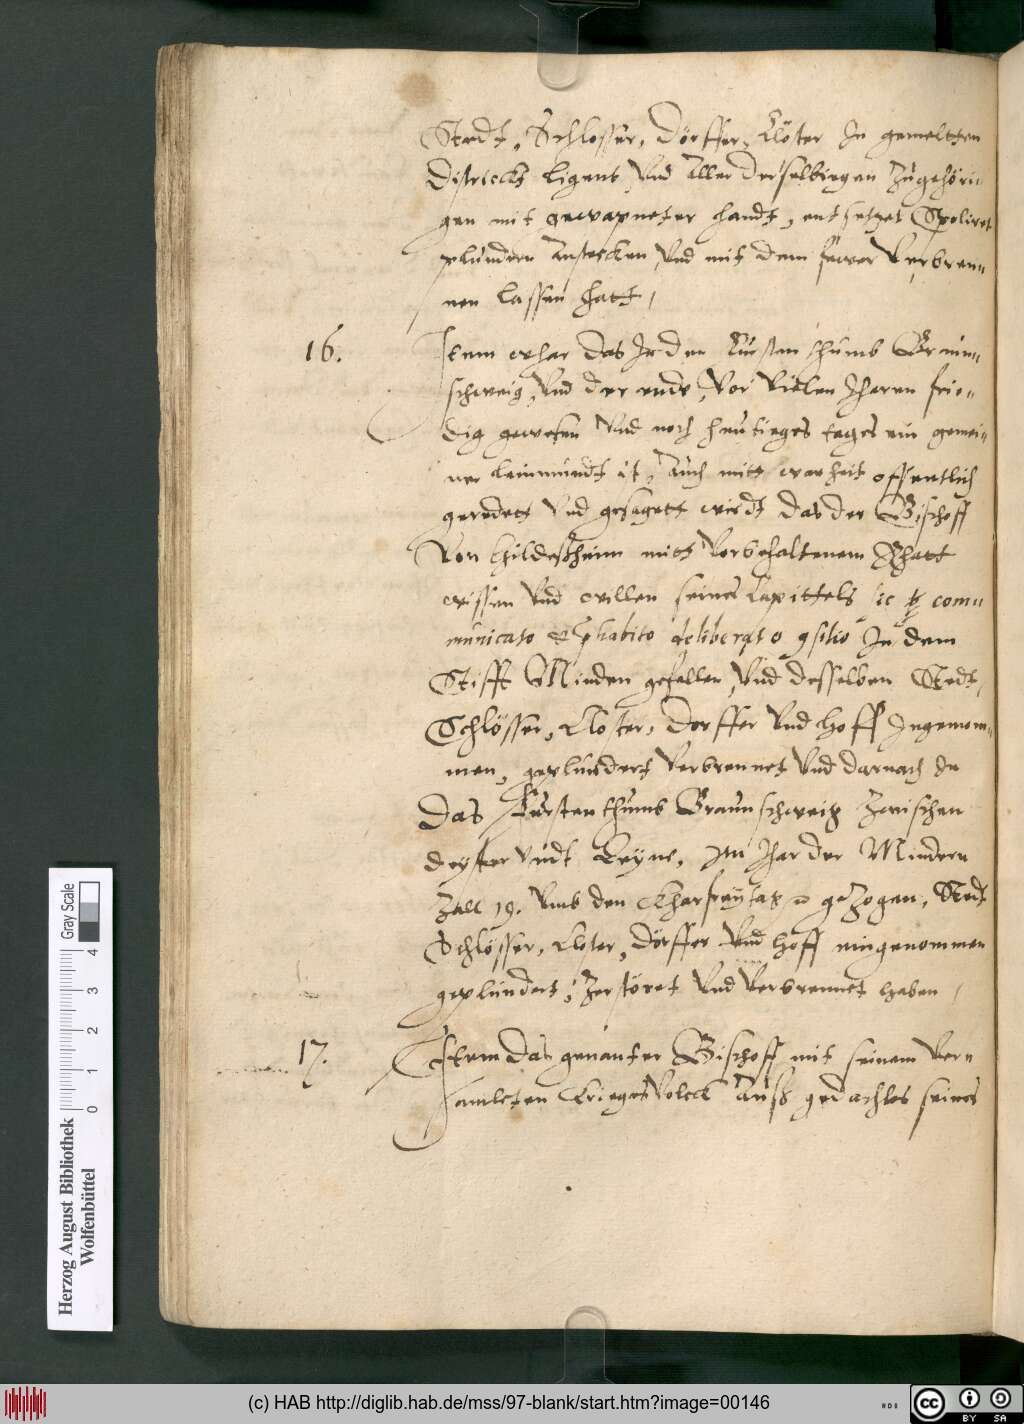 Stedt, Schlosser, Dörffer, Clöster In gemeltten
Districkts ligent Vnd Aller derselbiegen Zugehöri
gen mit gewapneter handt, entsetzet Spoliret
plundern Anstecken Vnd mit dem fewer Verbren„
nen lassen hatt,
16.
Item whar das In den Fürstenthumb Braun„
schweig, Vnd der ende, Vor Vielen Iharen frie„
dig gewesen Vnd noch heutieges tages ein gemei„
ner leimundt ist, Auch mitt warheit offentlich
geredett Vnd gesagett wirdt das der Bischoff
Von Hildesheim mitt Vorbehaltenem Rhatt
wissen Vnd willen seines Capittels sic comu
municato habito deliberato In dem
Stifft Minden gefallen Vnd desselben Stedt,
Schlösser, Closter, Dorffer Vnd Hoff Ingenom„
men, geplundert Verbrennet Vnd darnach In
das Fürstenthumb Braunschweig Zwischen
deyster Vndt Leyne, Im Ihar der Mindern
Zall 19. Vmb den Kharfreytag gezogen, Stedt
Schlösser, Closter, Dörffer Vnd Höff eingenommen
geplundert, Zerstöret Vnd Verbrennet haben,
17.
Item das genanter Bischoff mit seinem Vern
samleten KriegesVolck Auß gedachtes seines
Herzog August Bibliothek
Wolfenbüttel
0 1 2 3 4
Gray Scale
(c) HAB http://diglib.hab.de/mss/97-blank/start.htm?image=00146
cc BY SA